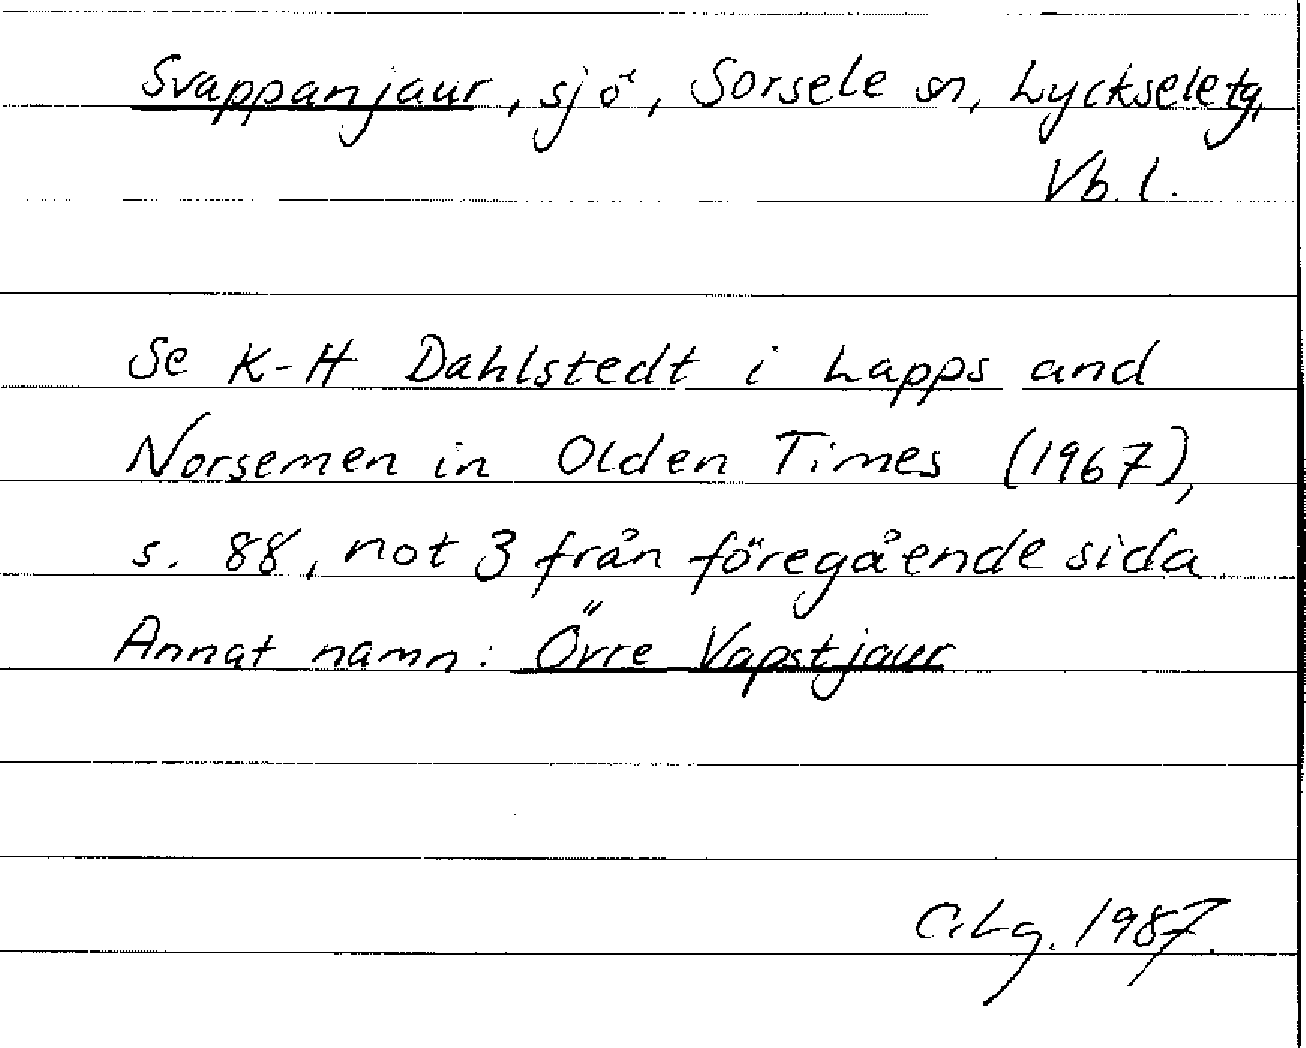 Svappanjaur, sjö, Sorsele sn, Lyckseletg,
Vb. l.
Se K-H Dahlstedt i Lapps and
Norsemen in Olden Times (1967),
s. 88, not 3 från föregående sida
Annat namn: Övre Vapstjaur
C.Lg. 1987.